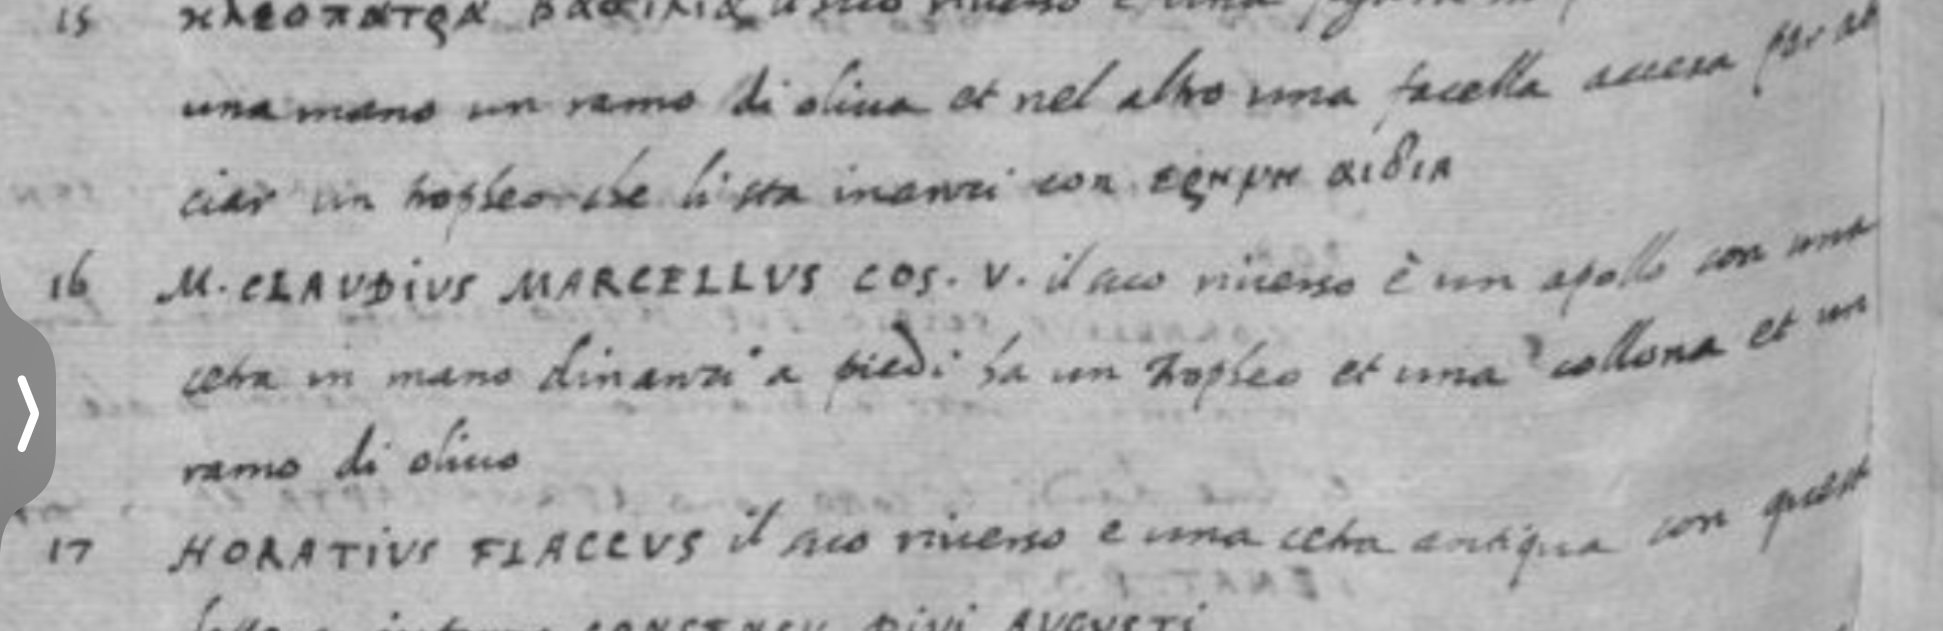 15 κλεοπατρα βασιλια il suo riuerso è una figura in
una mano un ramo di oliua et nel altro una facella accesa per ab
ciar un tropheo che li sta inanzi con ερηνη αιδια
16 M. CLAUDIUS MARCELLVS COS. V. il suo riuerso è un apollo con una
cetra in mano dinanzi a piedi ha un tropheo et una collona et un
ramo di oliuo
17 HORATIUS FLACCVS il suo riuerso e una cetra antiqua con quest
DIVI AUGUSTI